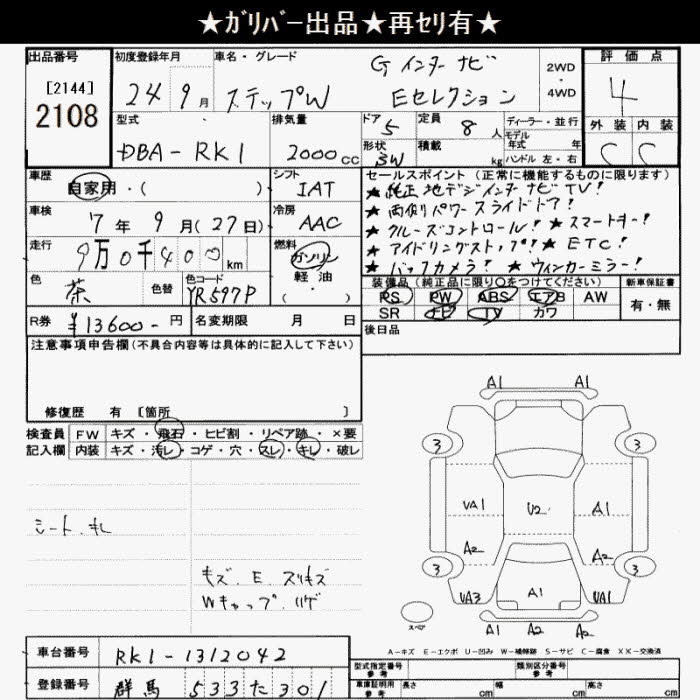 ★ｶﾞﾘﾊﾞｰ出品★再ｾﾘ有★
出品番号
[2144]
2108
初度登録年月
24年 9月
車名・グレード
ステップW
G インターナビ
Eセレクション
2WD
・
4WD
評価点
4
外装 内装
C C
型式
DBA-RK1
排気量
2000cc
ドア 5
定員 8人
形状 3W
積載 kg
ディーラー・並行
モデル
年式 年
ハンドル 左・右
車歴
自家用・( )
シフト
IAT
車検
7年 9月(27日)
冷房
AAC
走行
9万0千400km
燃料
ガソリン
軽油
・( )
色
茶
色替
色コード
YR597P
R券 ¥13600-円
名変期限 月 日
セールスポイント (正常に機能するものに限ります)
★純正地デジインターナビTV!
★両側パワースライドドア!
★クルーズコントロール! ★スマートキー!
★アイドリングストップ! ★ETC!
★バックカメラ! ★ウィンカーミラー!
装備品(純正品に限り○をつけてください)
PS PW ABS エアB AW
SR ナビ TV カワ
新車保証書
有・無
後日品
注意事項申告欄(不具合内容等は具体的に記入して下さい)
修復歴 有 [箇所 ]
検査員 FW キズ・飛石・ヒビ割・リペア跡・×要
記入欄 内装 キズ・汚レ・コゲ・穴・スレ・キレ・破レ
シート、キレ
キズ、E、スリキズ
Wキャップ、ハゲ
A1 A1
3 3
VA1 U2 A1
A2 A2
3 3
VA3 A1 UA1
スペア
A1 A2 A2
A-キズ E-エクボ U-凹み W-補修跡 S-サビ C-腐食 XX-交換済
車台番号 RK1-1312042
登録番号 群馬 533 た 301
型式指定番号
参考
類別区分番号
参考
車庫証明用
参考
長さ cm
幅 cm
高さ cm